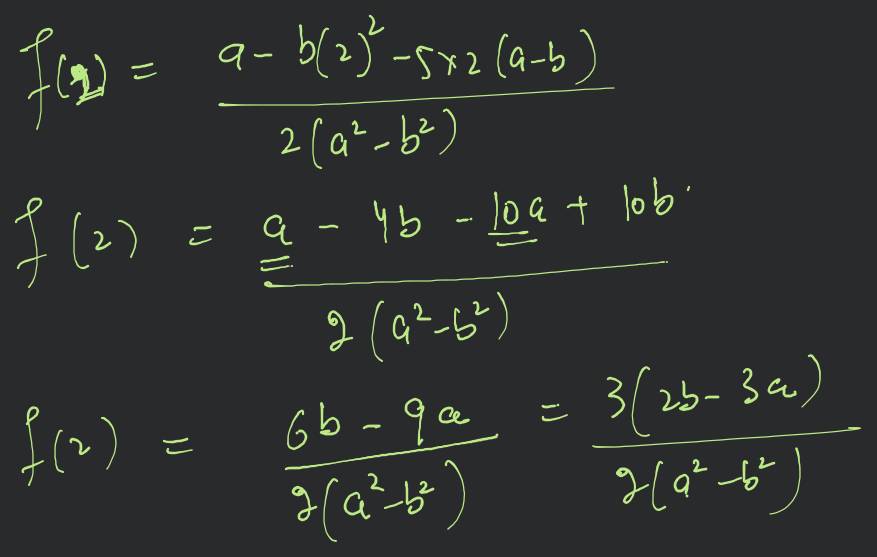 f(2) = (a - b(2)² - 5×2(a-b)) / (2(a² - b²))
f(2) = (a - 4b - 10a + 10b) / (2(a² - b²))
f(2) = (6b - 9a) / (2(a² - b²)) = 3(2b - 3a) / (2(a² - b²))